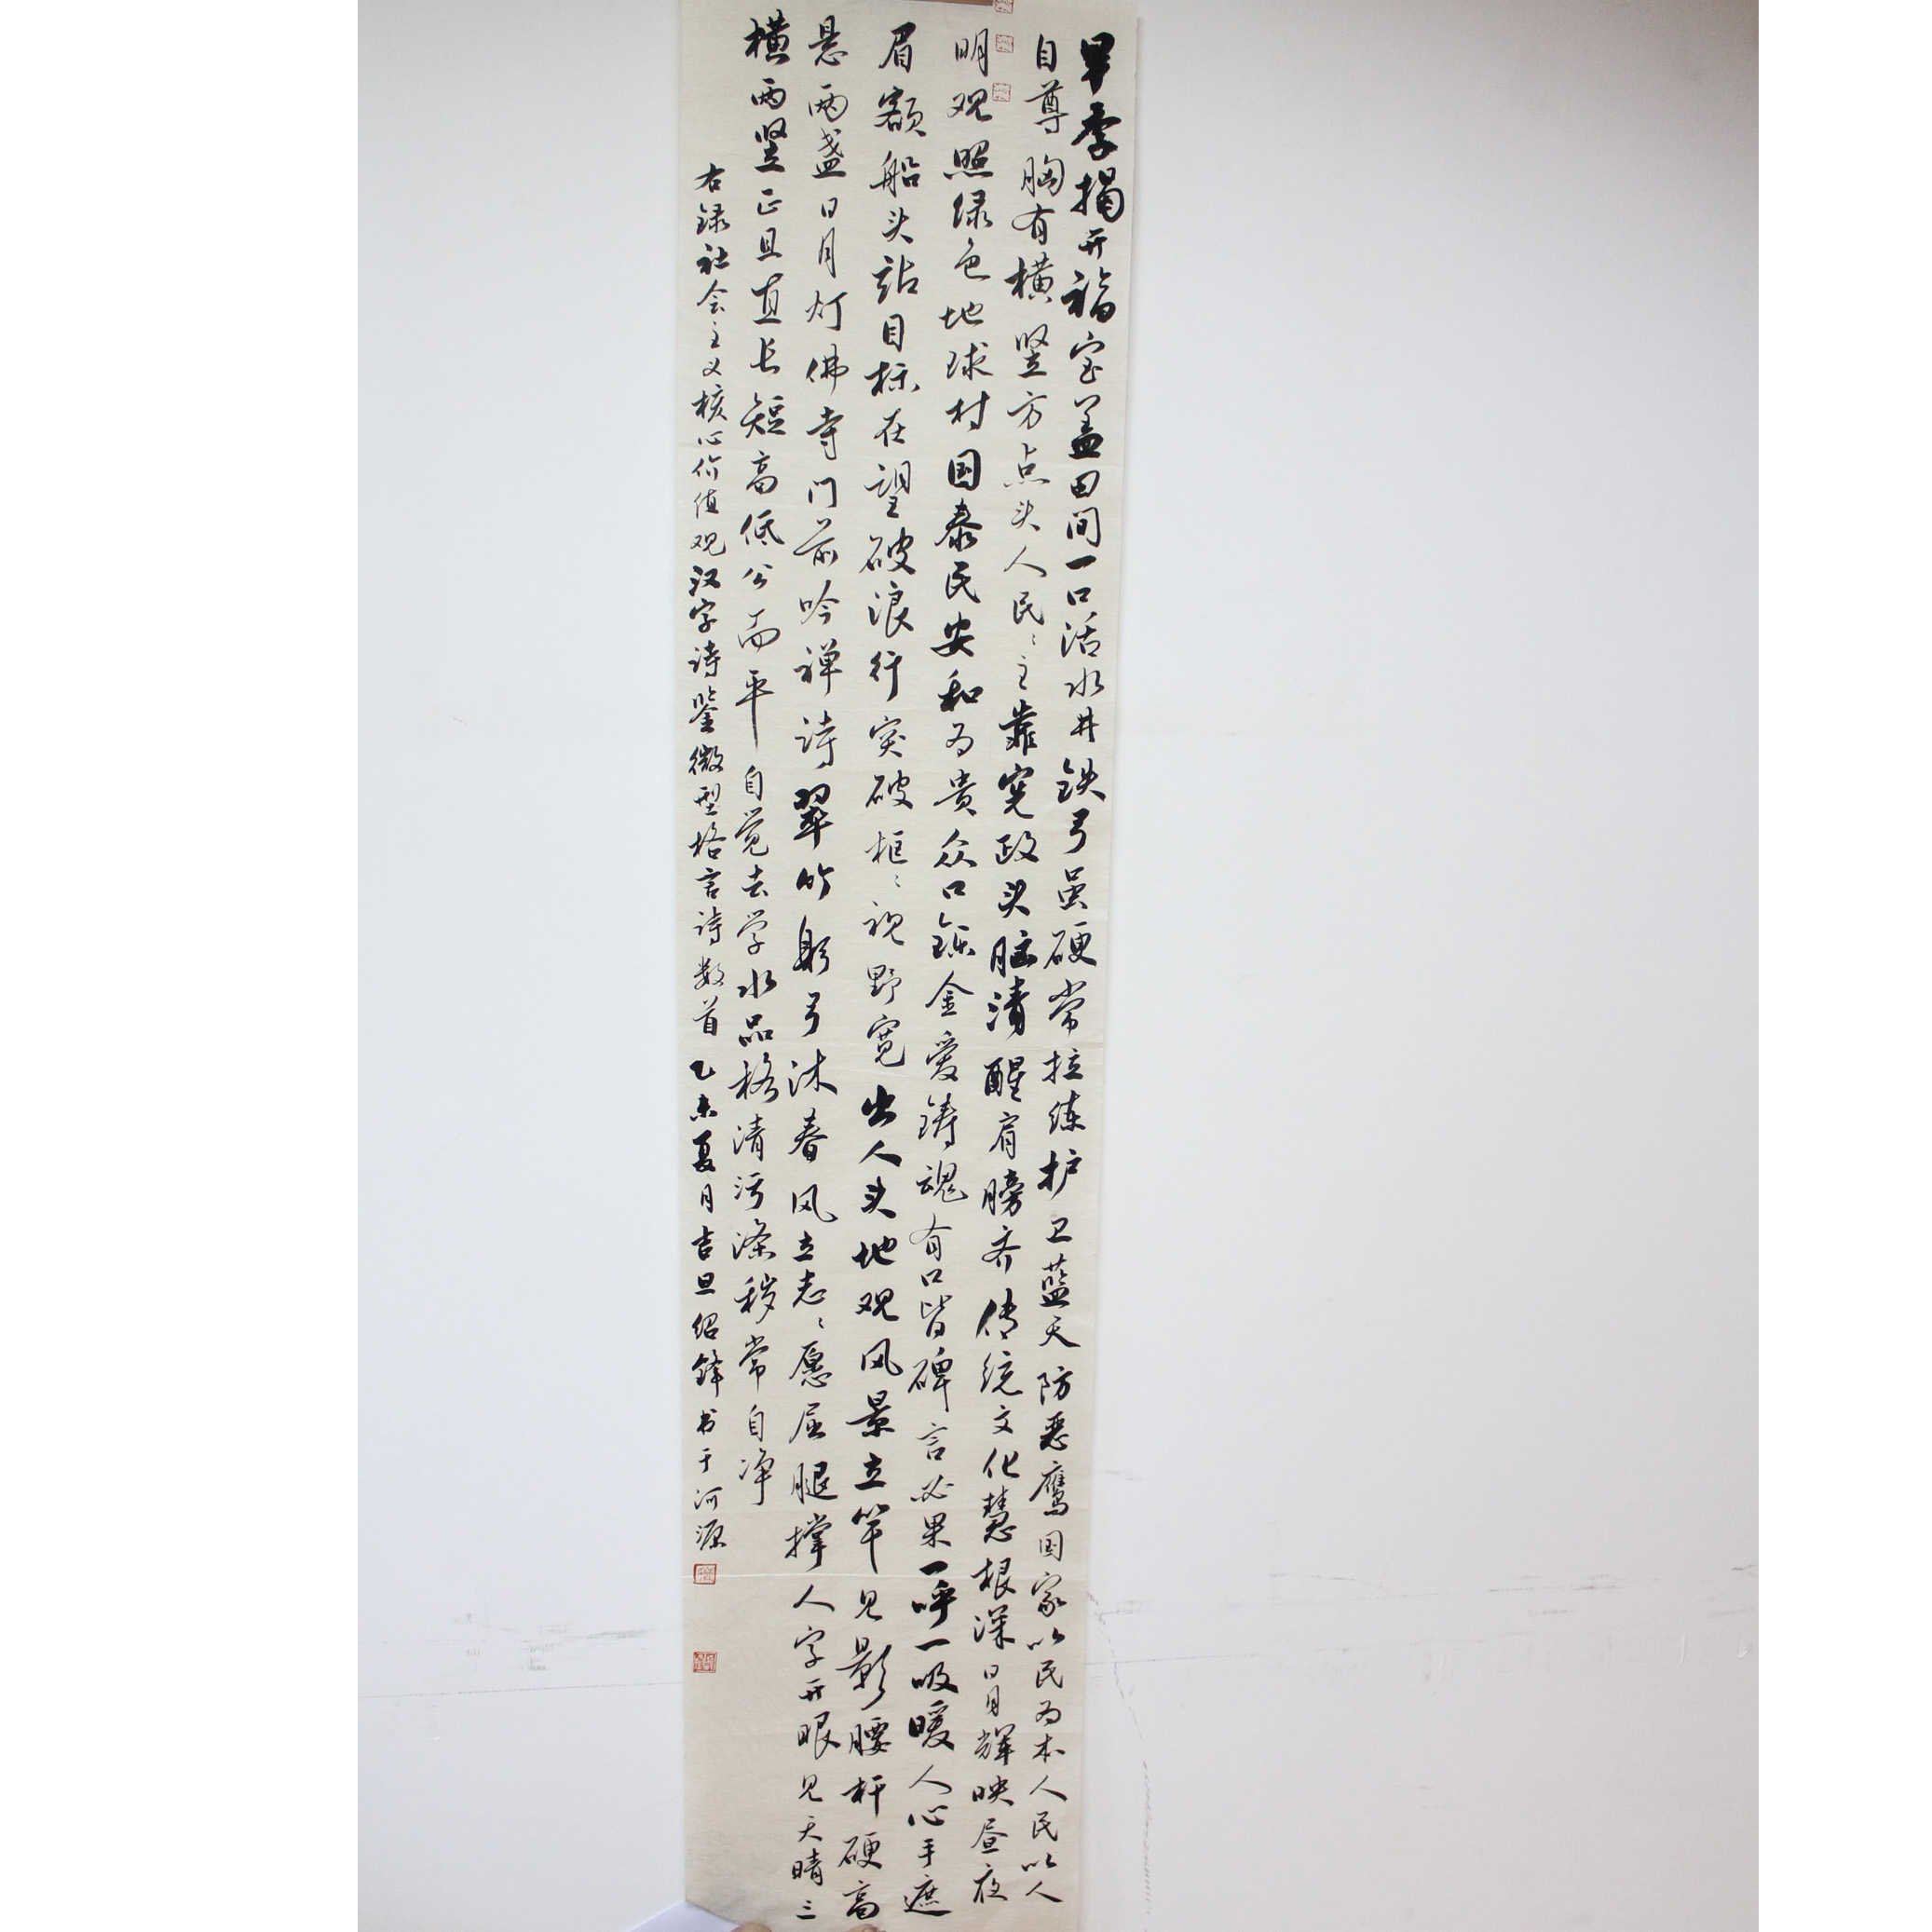 旱季揭开福字盖田间一口活水井铁弓虽硬常拉练护卫蓝天防恶鹰国家以民为本人民以人
自尊胸有横竖方点头人民〻主靠宪政头脑清醒肩膀齐传统文化慧根深日月辉映昼夜
明观照绿色地球村国泰民安和为贵众口铄金爱铸魂有口皆碑言必果一呼一吸暖人心手遮
眉额船头站目标在望破浪行突破框〻视野宽出人头地观风景立竿见影腰杆硬高
悬两盏日月灯佛寺门前吟禅诗翠竹躬弓沐春风立志〻愿屈腿撑人字开眼见天晴三
横两竖正且直长短高低公而平自觉去学水品格清污涤秽常自净
右录社会主义核心价值观汉字诗鉴微型格言诗数首乙未夏月吉旦绍锋书于河源